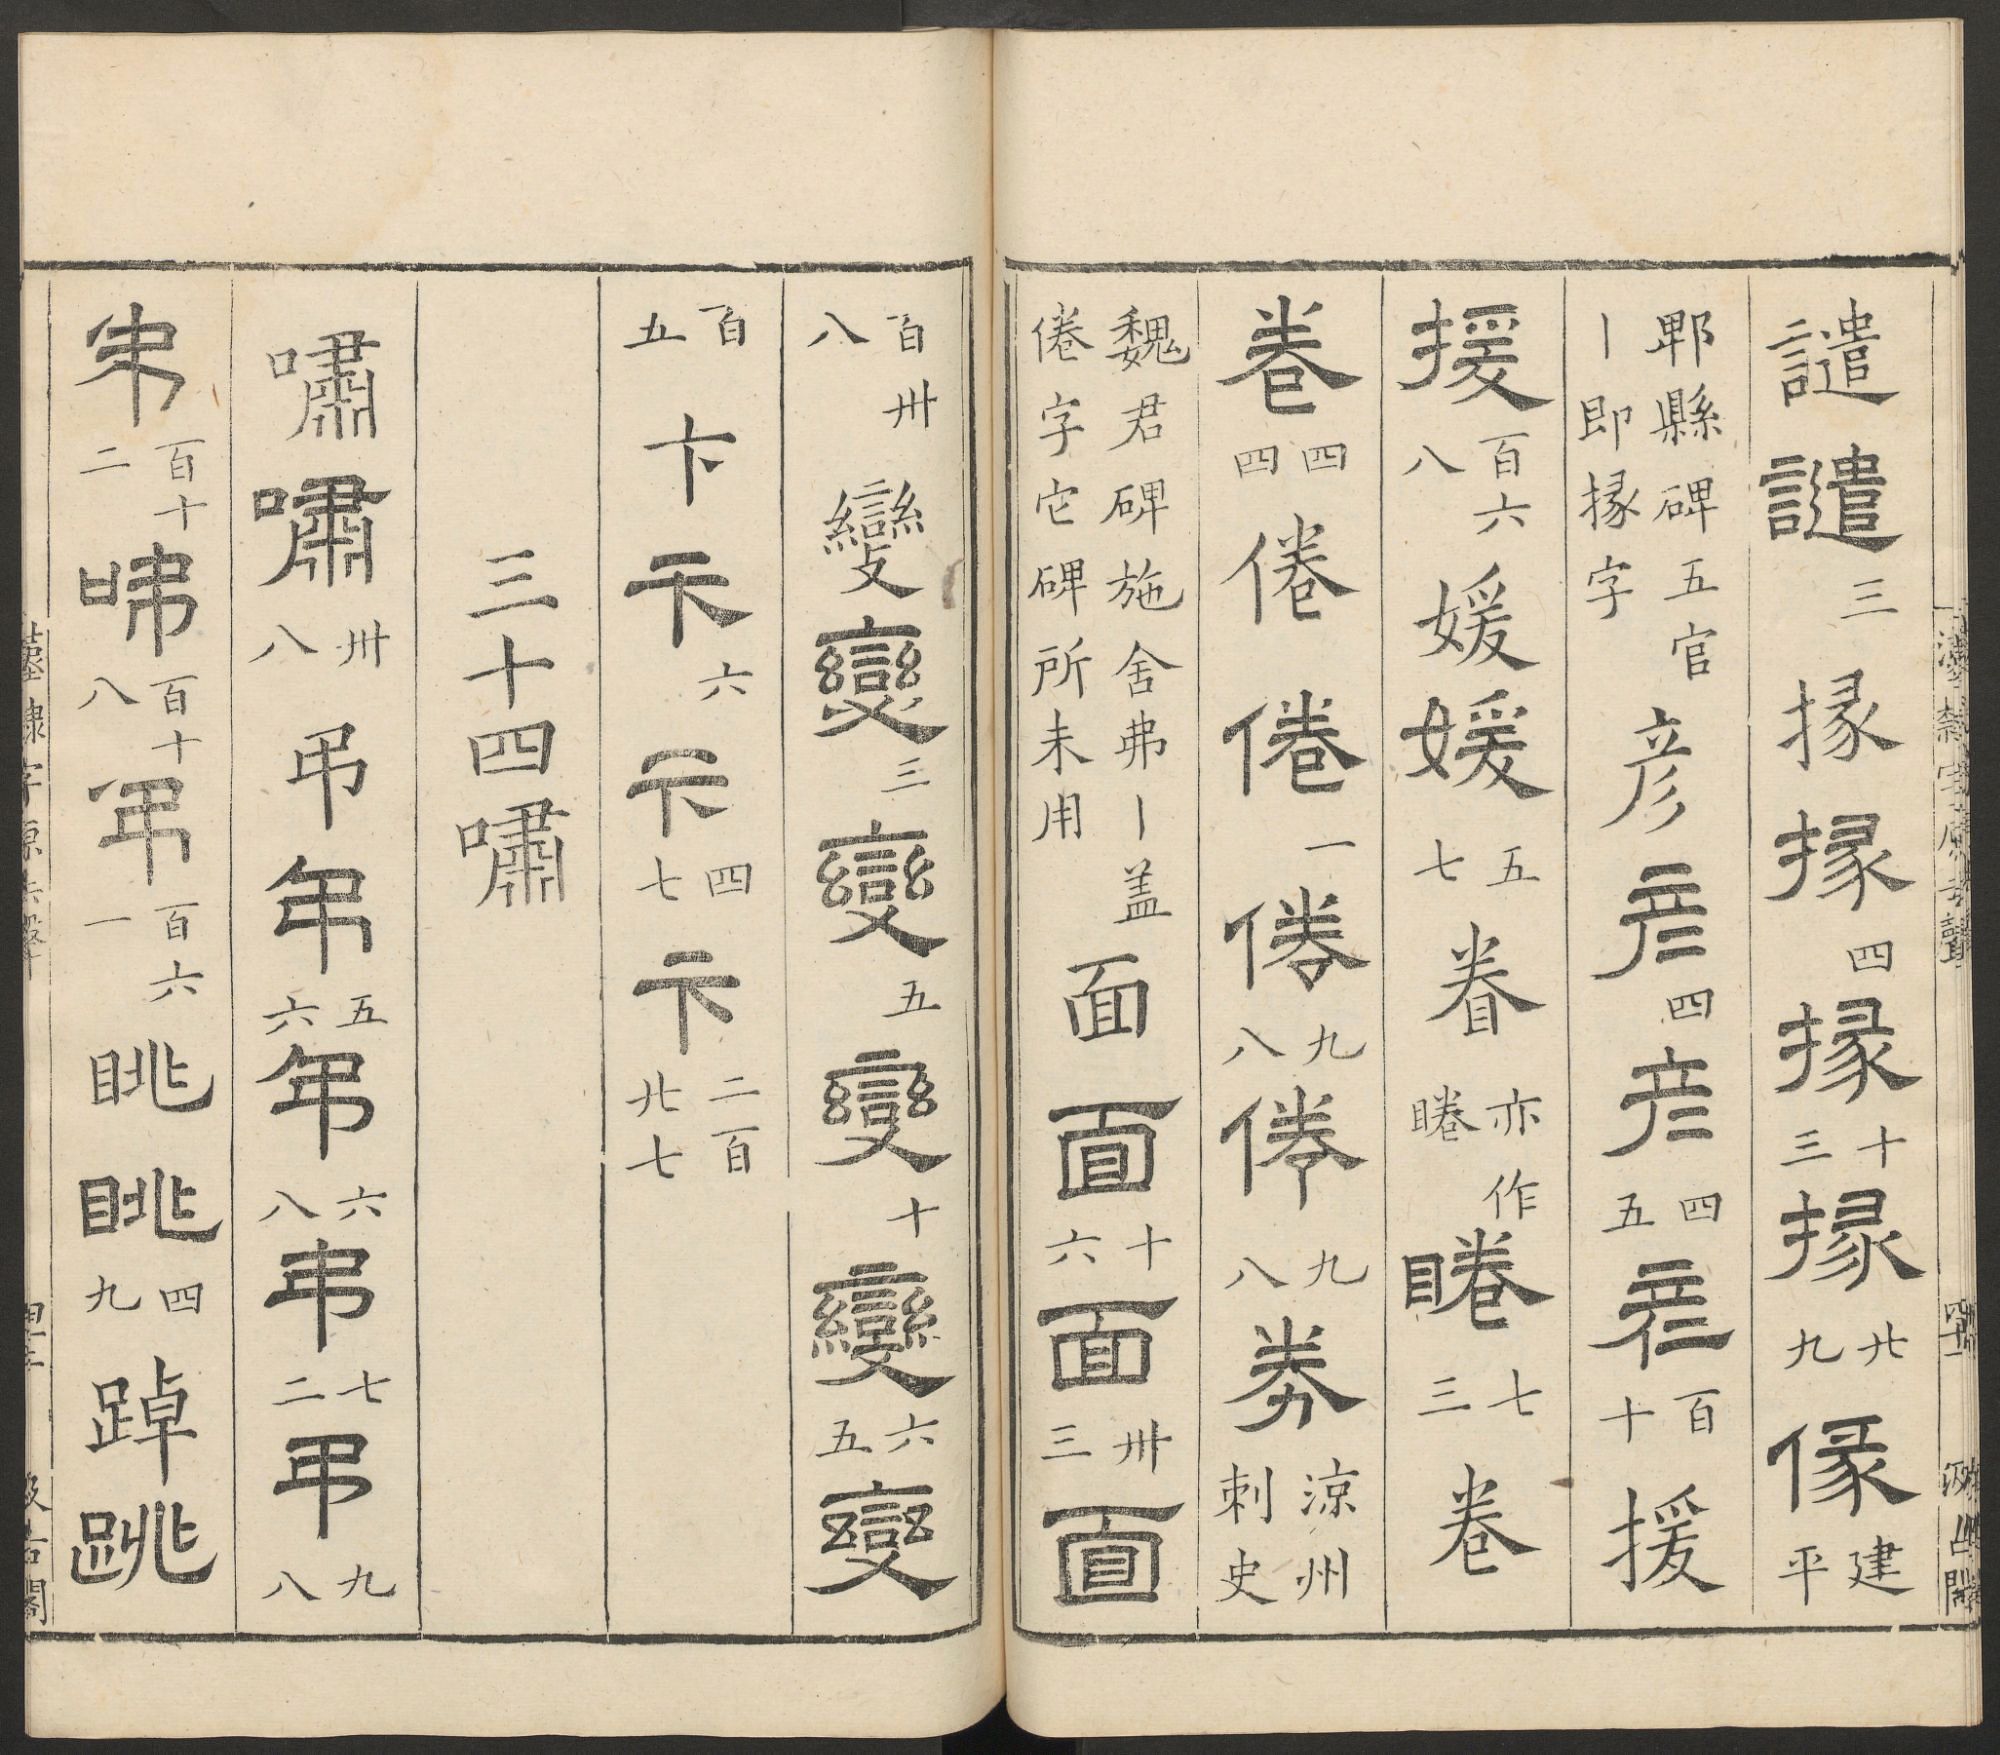 譴譴三掾掾四掾十三掾廿九㒽建平
郫縣碑五官丨即掾字彦彦四彦四五彦百十援
援百六八媛媛五七眷亦作睠睠七三卷
卷四四倦倦一倦九八倦九八券涼州刺史
魏君碑施舍弗丨盖倦字它碑所未用面面十六面卅三面
百卅八變變三變五變十變六五變
百五卞卞六卞四七卞二百廿七
三十四嘯
嘯嘯卅八弔弔五六弔六八弔七二弔九八
弔百十二弔百十八弔百六一眺眺四九踔跳
漢隸字原去聲
汲古閣